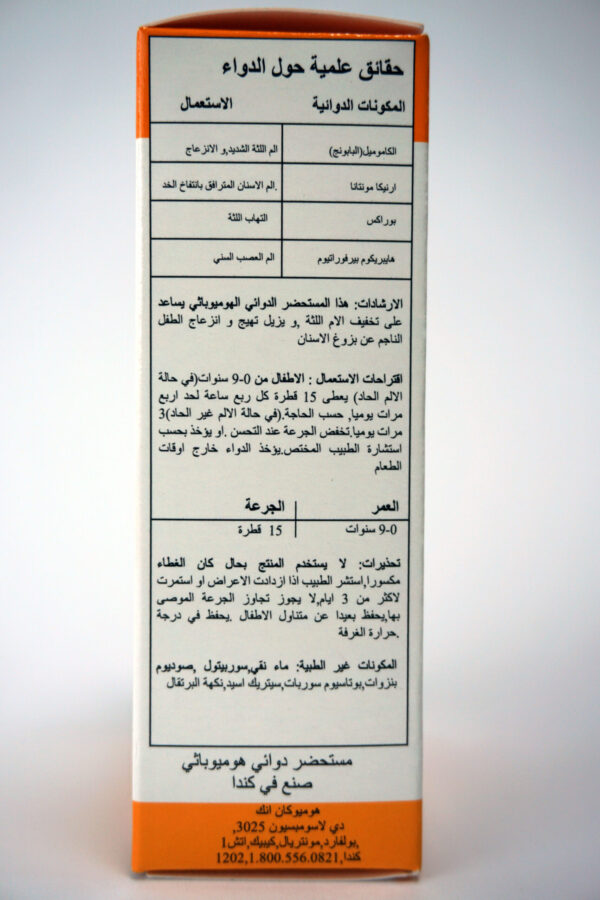 حقائق علمية حول الدواء
المكونات الدوائية الاستعمال
الكاموميل(البابونج) الم اللثة الشديد,و الانزعاج
ارنيكا مونتانا الم الاسنان المترافق بانتفاخ الخد.
بوراكس التهاب اللثة
هايبريكوم بيرفوراتيوم الم العصب السني
الارشادات: هذا المستحضر الدوائي الهوميوباثي يساعد
على تخفيف الام اللثة ,و يزيل تهيج و انزعاج الطفل
الناجم عن بزوغ الاسنان
اقتراحات الاستعمال : الاطفال من 0-9 سنوات(في حالة
الالم الحاد) يعطى 15 قطرة كل ربع ساعة لحد اربع
مرات يوميا, حسب الحاجة.(في حالة الالم غير الحاد)3
مرات يوميا.تخفض الجرعة عند التحسن .او يؤخذ بحسب
استشارة الطبيب المختص.يؤخذ الدواء خارج اوقات
الطعام
العمر الجرعة
0-9 سنوات 15 قطرة
تحذيرات: لا يستخدم المنتج بحال كان الغطاء
مكسورا,استشر الطبيب اذا ازدادت الاعراض او استمرت
لاكثر من 3 ايام,لا يجوز تجاوز الجرعة الموصى
بها,يحفظ بعيدا عن متناول الاطفال .يحفظ في درجة
حرارة الغرفة.
المكونات غير الطبية: ماء نقي,سوربيتول ,صوديوم
بنزوات,بوتاسيوم سوربات,سيتريك اسيد,نكهة البرتقال
مستحضر دوائي هوميوباثي
صنع في كندا
هوميوكان انك
دي لاسومبسيون 3025,
بولفارد,مونتريال,كيبيك,اتش1,
كندا,1202,1.800.556.0821